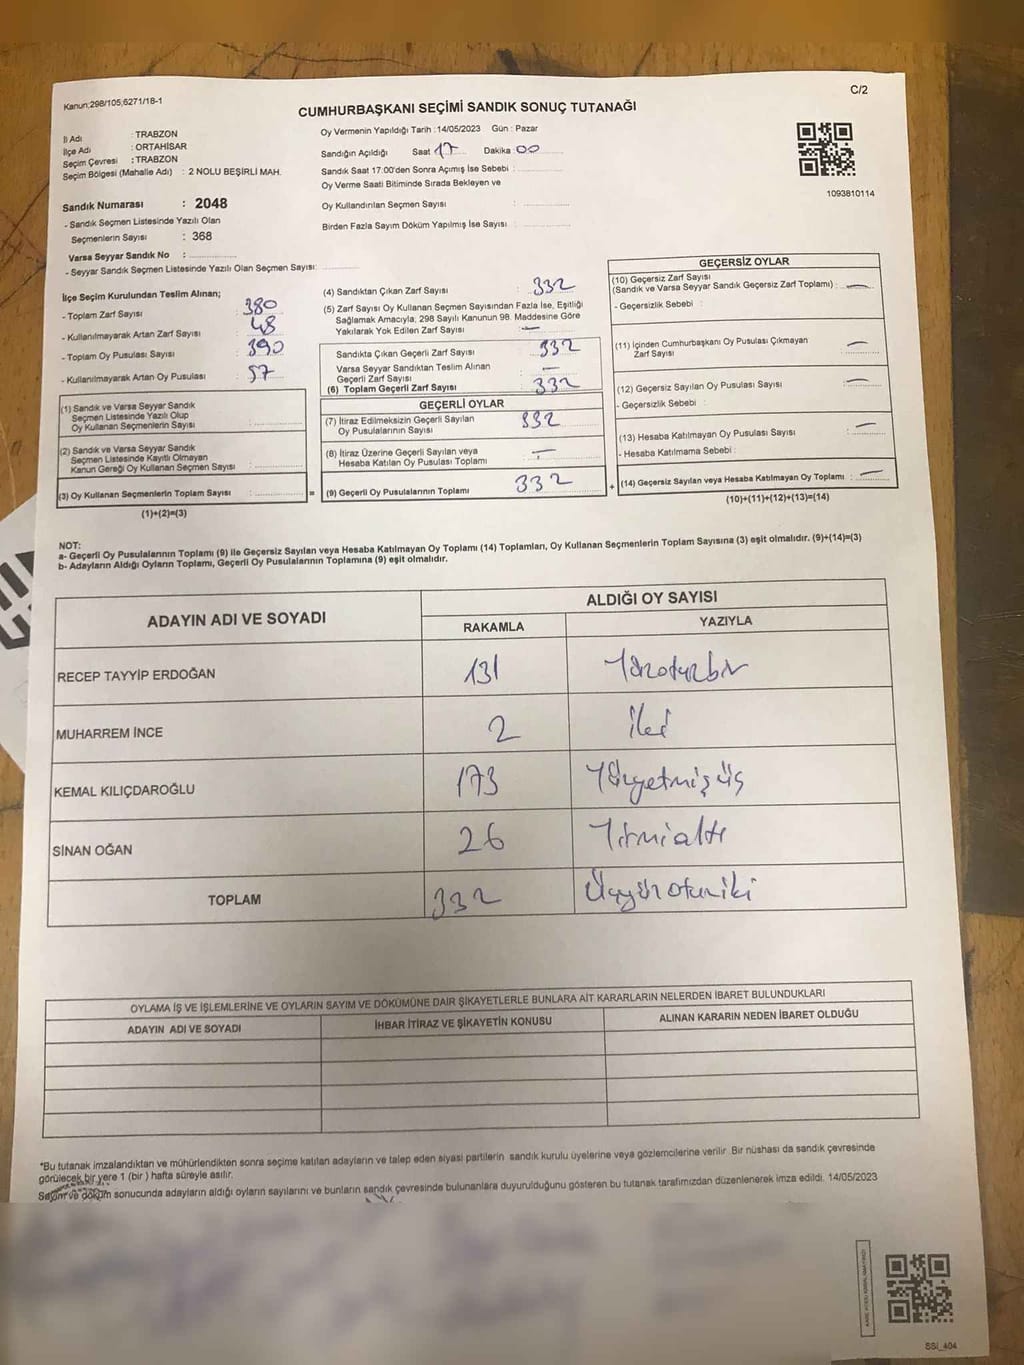 Kanun;298/105;6271/18-1
C/2
CUMHURBAŞKANI SEÇİMİ SANDIK SONUÇ TUTANAĞI
İl Adı : TRABZON
İlçe Adı : ORTAHİSAR
Seçim Çevresi : TRABZON
Seçim Bölgesi (Mahalle Adı) : 2 NOLU BEŞİRLİ MAH.
Oy Vermenin Yapıldığı Tarih :14/05/2023 Gün : Pazar
Sandığın Açıldığı Saat 17 Dakika : 00
Sandık Saat 17:00'den Sonra Açımış İse Sebebi :
Oy Verme Saati Bitiminde Sırada Bekleyen ve
Oy Kullandırılan Seçmen Sayısı :
Birden Fazla Sayım Döküm Yapılmış İse Sayısı :
1093810114
Sandık Numarası : 2048
- Sandık Seçmen Listesinde Yazılı Olan
Seçmenlerin Sayısı : 368
Varsa Seyyar Sandık No :
- Seyyar Sandık Seçmen Listesinde Yazılı Olan Seçmen Sayısı:
İlçe Seçim Kurulundan Teslim Alınan;
- Toplam Zarf Sayısı : 380
- Kullanılmayarak Artan Zarf Sayısı : 48
- Toplam Oy Pusulası Sayısı : 390
- Kullanılmayarak Artan Oy Pusulası : 57
(1) Sandık ve Varsa Seyyar Sandık
Seçmen Listesinde Yazılı Olup
Oy Kullanan Seçmenlerin Sayısı :
(2) Sandık ve Varsa Seyyar Sandık
Seçmen Listesinde Kayıtlı Olmayan
Kanun Gereği Oy Kullanan Seçmen Sayısı :
(3) Oy Kullanan Seçmenlerin Toplam Sayısı :
(1)+(2)=(3)
(4) Sandıktan Çıkan Zarf Sayısı : 332
(5) Zarf Sayısı Oy Kullanan Seçmen Sayısından Fazla İse, Eşitliği
Sağlamak Amacıyla; 298 Sayılı Kanunun 98. Maddesine Göre
Yakılarak Yok Edilen Zarf Sayısı : —
Sandıkta Çıkan Geçerli Zarf Sayısı : 332
Varsa Seyyar Sandıktan Teslim Alınan
Geçerli Zarf Sayısı : —
(6) Toplam Geçerli Zarf Sayısı : 332
GEÇERLİ OYLAR
(7) İtiraz Edilmeksizin Geçerli Sayılan
Oy Pusulalarının Sayısı : 332
(8) İtiraz Üzerine Geçerli Sayılan veya
Hesaba Katılan Oy Pusulası Toplamı : —
= (9) Geçerli Oy Pusulalarının Toplamı : 332
GEÇERSİZ OYLAR
(10) Geçersiz Zarf Sayısı
(Sandık ve Varsa Seyyar Sandık Geçersiz Zarf Toplamı) : —
- Geçersizlik Sebebi :
(11) İçinden Cumhurbaşkanı Oy Pusulası Çıkmayan
Zarf Sayısı : —
(12) Geçersiz Sayılan Oy Pusulası Sayısı : —
- Geçersizlik Sebebi :
(13) Hesaba Katılmayan Oy Pusulası Sayısı : —
- Hesaba Katılmama Sebebi :
+ (14) Geçersiz Sayılan veya Hesaba Katılmayan Oy Toplamı : —
(10)+(11)+(12)+(13)=(14)
NOT:
a- Geçerli Oy Pusulalarının Toplamı (9) ile Geçersiz Sayılan veya Hesaba Katılmayan Oy Toplamı (14) Toplamları, Oy Kullanan Seçmenlerin Toplam Sayısına (3) eşit olmalıdır. (9)+(14)=(3)
b- Adayların Aldığı Oyların Toplamı, Geçerli Oy Pusulalarının Toplamına (9) eşit olmalıdır.
ADAYIN ADI VE SOYADI
ALDIĞI OY SAYISI
RAKAMLA YAZIYLA
RECEP TAYYİP ERDOĞAN 131 Yüzotuzbir
MUHARREM İNCE 2 İki
KEMAL KILIÇDAROĞLU 173 Yüzyetmişüç
SİNAN OĞAN 26 Yirmialtı
TOPLAM 332 Üçyüzotuziki
OYLAMA İŞ VE İŞLEMLERİNE VE OYLARIN SAYIM VE DÖKÜMÜNE DAİR ŞİKAYETLERLE BUNLARA AİT KARARLARIN NELERDEN İBARET BULUNDUKLARI
ADAYIN ADI VE SOYADI İHBAR İTİRAZ VE ŞİKAYETİN KONUSU ALINAN KARARIN NEDEN İBARET OLDUĞU
*Bu tutanak imzalandıktan ve mühürlendikten sonra seçime katılan adayların ve talep eden siyasi partilerin sandık kurulu üyelerine veya gözlemcilerine verilir. Bir nüshası da sandık çevresinde
görülecek bir yere 1 (bir ) hafta süreyle asılır.
Sayım ve döküm sonucunda adayların aldığı oyların sayılarını ve bunların sandık çevresinde bulunanlara duyurulduğunu gösteren bu tutanak tarafımızdan düzenlenerek imza edildi. 14/05/2023
SSI_404